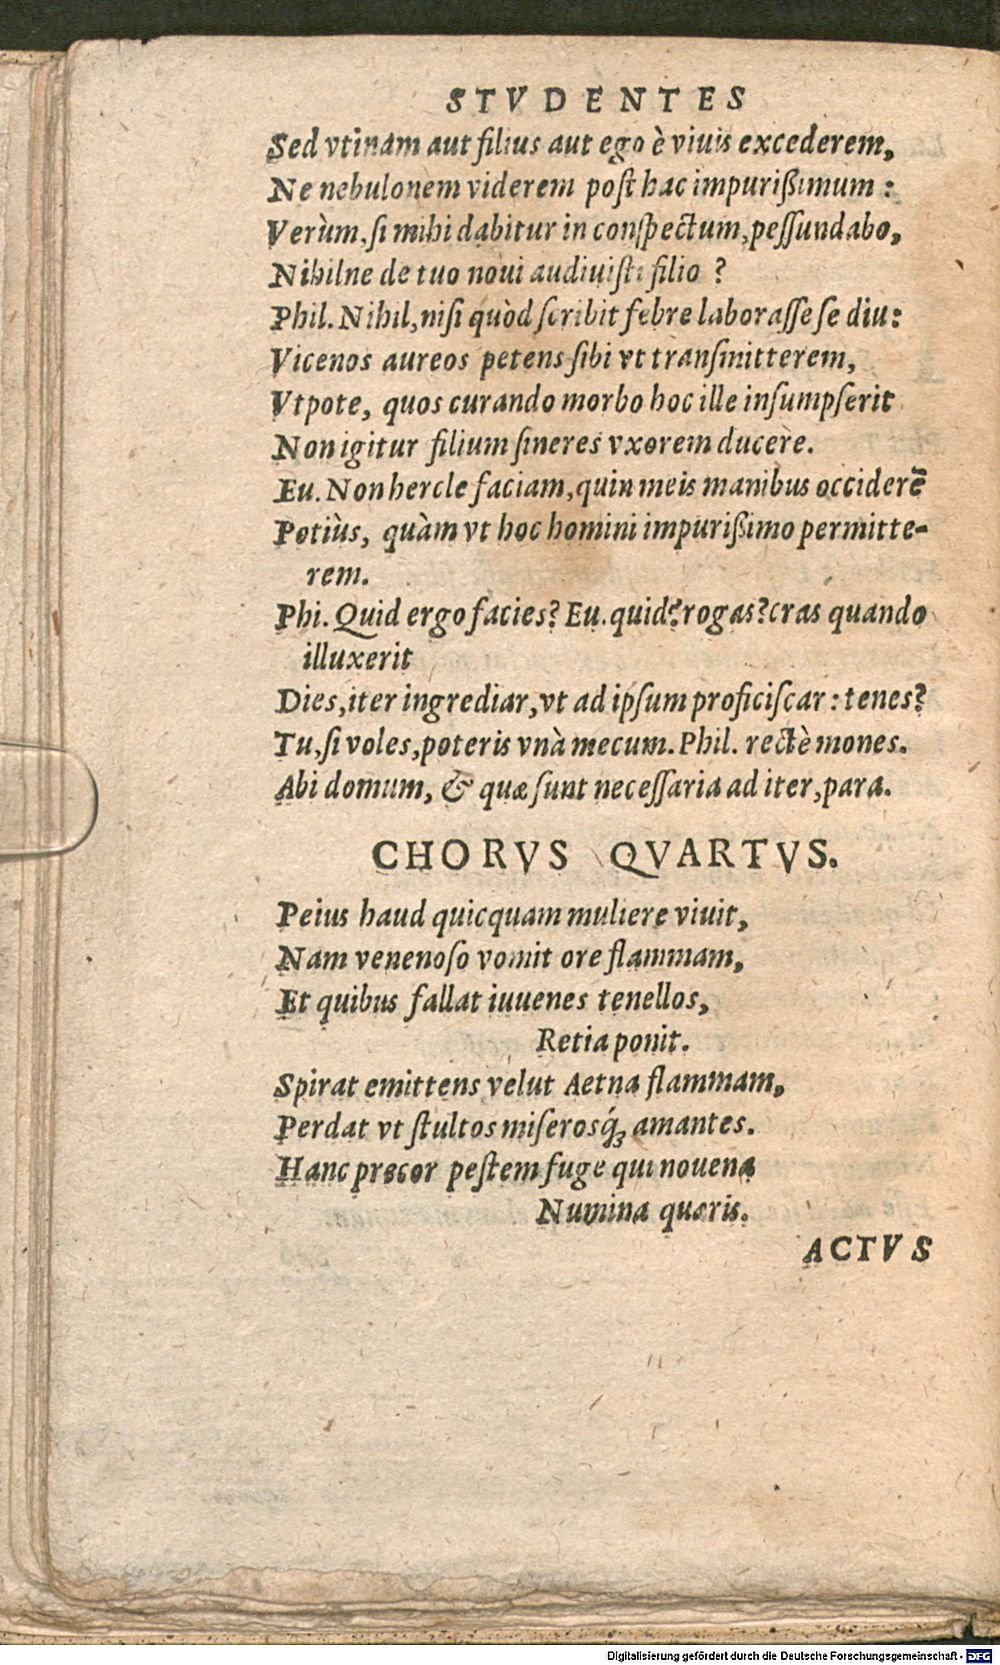 STVDENTES
Sed vtinam aut filius aut ego è viuis excederem,
Ne nebulonem viderem post hac impurißimum:
Verùm, si mihi dabitur in conspectum, pessundabo,
Nihilne de tuo noui audiuisti filio?
Phil. Nihil, nisi quòd scribit febre laborasse se diu:
Vicenos aureos petens sibi vt transmitterem,
Vtpote, quos curando morbo hoc ille insumpserit
Non igitur filium sineres vxorem ducere.
Eu. Non hercle faciam, quin meis manibus occiderē
Potiùs, quàm vt hoc homini impurißimo permitte-
rem.
Phi. Quid ergo facies? Eu. quid? rogas? cras quando
illuxerit
Dies, iter ingrediar, vt ad ipsum proficiscar: tenes?
Tu, si voles, poteris vnà mecum. Phil. rectè mones.
Abi domum, & quæ sunt necessaria ad iter, para.
CHORVS QVARTVS.
Peius haud quicquam muliere viuit,
Nam venenoso vomit ore flammam,
Et quibus fallat iuuenes tenellos,
Retia ponit.
Spirat emittens velut Aetna flammam,
Perdat vt stultos miserosq́; amantes.
Hanc precor pestem fuge qui nouena
Numina quæris.
ACTVS
Digitalisierung gefördert durch die Deutsche Forschungsgemeinschaft - DFG